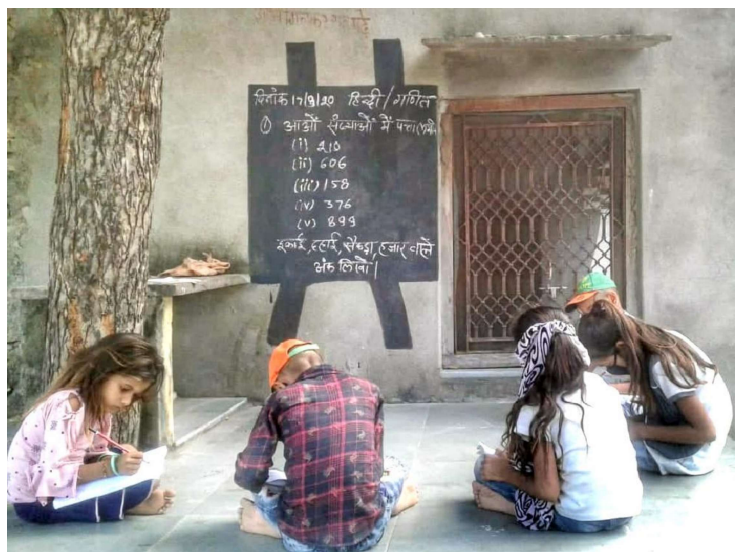 दिनांक 17/9/20 हिन्दी/गणित
① आओं संख्याओं में पता
(i) 210
(ii) 606
(iii) 158
(iv) 376
(v) 899
इकाई, दहाई, सैकड़ा, हजार वाले
अंक लिखो।